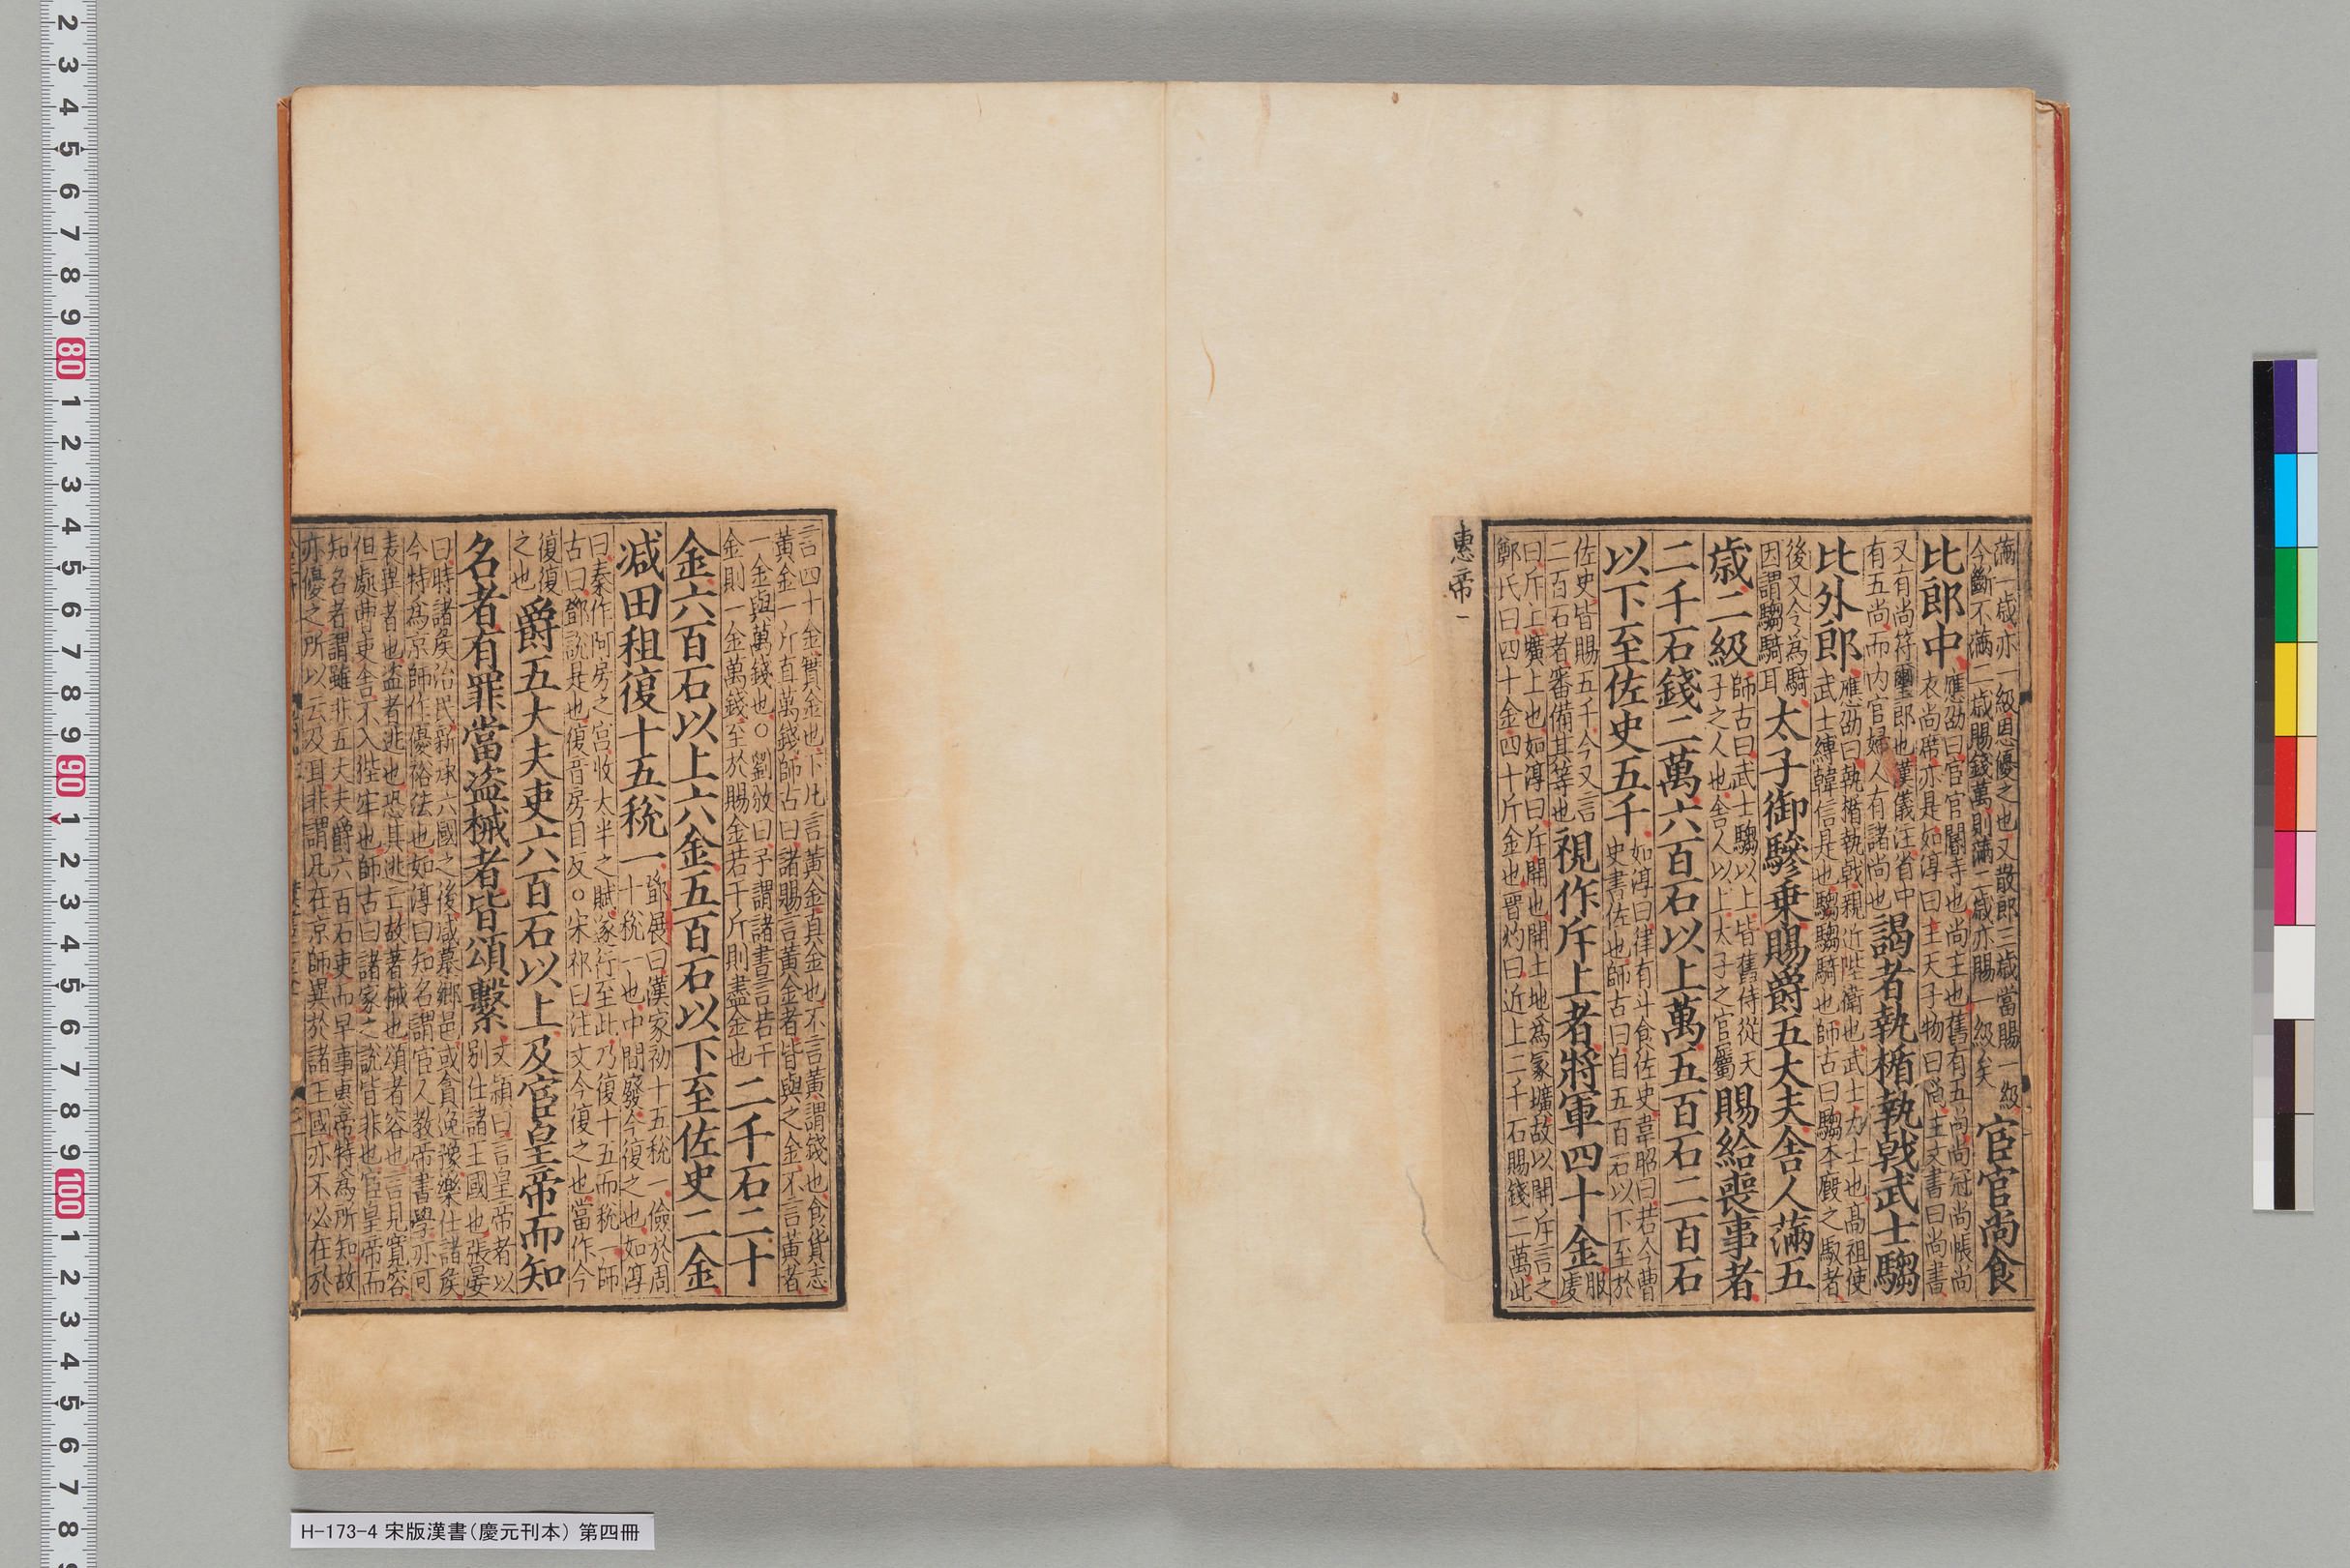 滿一歲亦一級因恩優之也又散郎三歲當賜一級
今斷不滿二歲賜錢萬則滿二歲亦賜一級矣
宦官尚食
比郎中
應劭曰宦官閽寺也尚主也舊有五尚尚冠尚帳尚
衣尚席亦是如淳曰主天子物曰尚主文書曰尚書
又有尚符璽郎也漢儀注省中
有五尚而内官婦人有諸尚也
謁者執楯執戟武士騶
比外郎
應劭曰執楯執戟親近陛衛也武士力士也髙祖使
武士縛韓信是也騶騶騎也師古曰騶本廐之馭者
後又令為騎
因謂騶騎耳
太子御驂乗賜爵五大夫舍人滿五
歲二級
師古曰武士騶以上皆舊侍從天
子之人也舍人以上太子之官屬
賜給喪事者
二千石錢二萬六百石以上萬五百石二百石
以下至佐史五千
如淳曰律有斗食佐史韋昭曰若今曹
史書佐也師古曰自五百石以下至於
佐史皆賜五千今又言
二百石者審備其等也
視作斥上者將軍四十金
服
䖍
曰斥上壙上也如淳曰斥開也開土地爲冢壙故以開斥言之
鄭氏曰四十金四十斤金也晋灼曰近上二千石賜錢二萬此
惠帝一
言四十金實金也下凡言黃金真金也不言黃謂錢也食貨志
黃金一斤直萬錢師古曰諸賜言黃金者皆與之金不言黃者
一金與萬錢也○劉攽曰予謂諸書言若干
金則一金萬錢至於賜金若干斤則盡金也
二千石二十
金六百石以上六金五百石以下至佐史二金
減田租復十五稅一
鄧展曰漢家初十五稅一儉於周
十稅一也中間廢今復之也如淳
曰秦作阿房之宮收太半之賦遂行至此乃復十五而稅一師
古曰鄧說是也復音房目反○宋祁曰注文今復之也當作今
復復
之也
爵五大夫吏六百石以上及宦皇帝而知
名者有罪當盜械者皆頌繫
文穎曰言皇帝者以
别仕諸王國也張晏
曰時諸矦治民新承六國之後咸慕鄉邑或貪逸豫樂仕諸矦
今特爲京師作優裕法也如淳曰知名謂宦人教帝書學亦可
表異者也盜者逃也恐其逃亡故著械也頌者容也言見寛容
但處曹吏舍不入狴牢也師古曰諸家之說皆非也宦皇帝而
知名者謂雖非五大夫爵六百石吏而早事惠帝特為所知故
亦優之所以云及耳非謂凡在京師異於諸王國亦不必在於
H-173-4 宋版漢書（慶元刊本） 第四冊
2 3 4 5 6 7 8 9 80 1 2 3 4 5 6 7 8 9 90 1 2 3 4 5 6 7 8 9 100 1 2 3 4 5 6 7 8